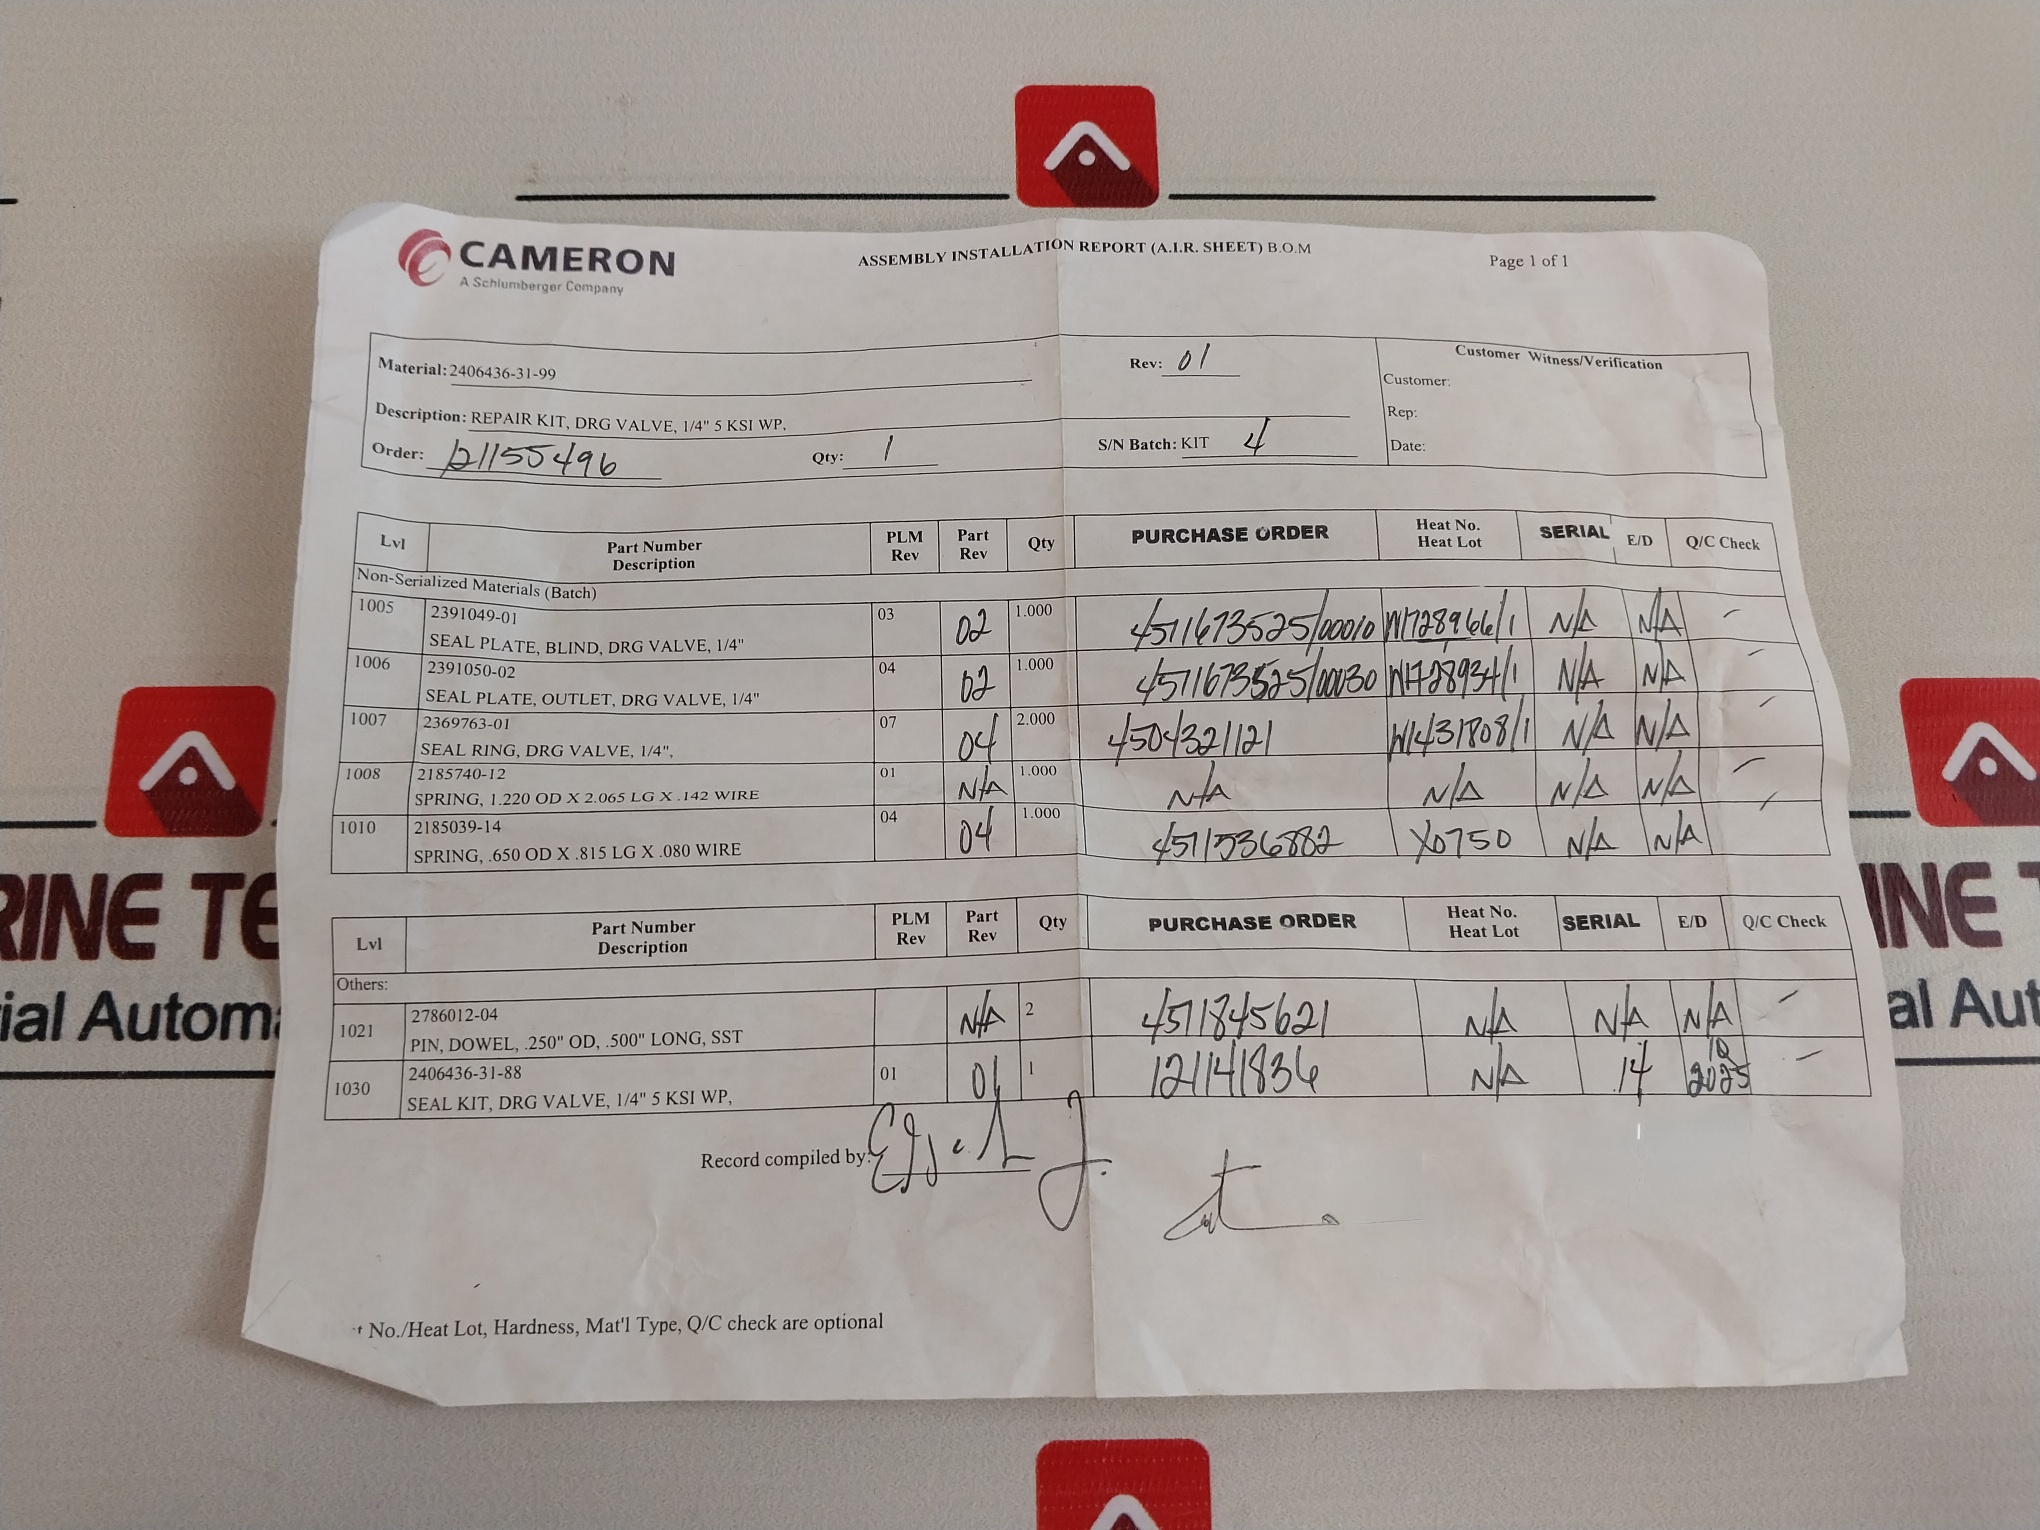 CAMERON
A Schlumberger Company
ASSEMBLY INSTALLATION REPORT (A.I.R. SHEET) B.O.M
Page 1 of 1
Material: 2406436-31-99
Rev: 01
Description: REPAIR KIT, DRG VALVE, 1/4" 5 KSI WP,
Order: 121155496
Qty: 1
S/N Batch: KIT 4
Customer Witness/Verification
Customer:
Rep:
Date:
Lvl Part Number Description PLM Rev Part Rev Qty PURCHASE ORDER Heat No. Heat Lot SERIAL E/D Q/C Check
Non-Serialized Materials (Batch)
1005 2391049-01 03 02 1.000 4511673525/00010 W1728966/1 N/A N/A
SEAL PLATE, BLIND, DRG VALVE, 1/4"
1006 2391050-02 04 02 1.000 4511673525/00030 W1728934/1 N/A N/A
SEAL PLATE, OUTLET, DRG VALVE, 1/4"
1007 2369763-01 07 04 2.000 4504321121 W1431808/1 N/A N/A
SEAL RING, DRG VALVE, 1/4",
1008 2185740-12 01 N/A 1.000 N/A N/A N/A N/A
SPRING, 1.220 OD X 2.065 LG X .142 WIRE
1010 2185039-14 04 04 1.000 4511536882 Y0750 N/A N/A
SPRING, .650 OD X .815 LG X .080 WIRE
Lvl Part Number Description PLM Rev Part Rev Qty PURCHASE ORDER Heat No. Heat Lot SERIAL E/D Q/C Check
Others:
1021 2786012-04 N/A 2 4511845621 N/A N/A N/A
PIN, DOWEL, .250" OD, .500" LONG, SST
1030 2406436-31-88 01 01 1 121141836 N/A 14 10 2025
SEAL KIT, DRG VALVE, 1/4" 5 KSI WP,
Record compiled by:
No./Heat Lot, Hardness, Mat'l Type, Q/C check are optional
RINE TE
ial Automa
INE T
al Aut